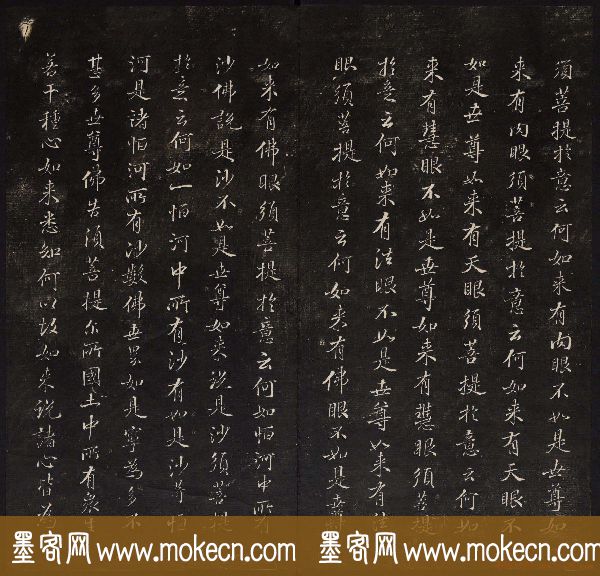 須菩提於意云何如来有肉眼不如是世尊如
来有肉眼須菩提於意云何如来有天眼不
如是世尊如来有天眼須菩提於意云何如
来有慧眼不如是世尊如来有慧眼須菩提
於意云何如来有法眼不如是世尊如来有法
眼須菩提於意云何如来有佛眼不如是世尊
如来有佛眼須菩提於意云何如恒河中所有
沙佛說是沙不如是世尊如来說是沙須菩提
於意云何如一恒河中所有沙有如是沙等恒
河是諸恒河所有沙數佛世界如是寧為多不
甚多世尊佛告須菩提尔所國土中所有衆生
若干種心如来悉知何以故如来說諸心皆為
墨客网 www.mokecn.com
墨客网 www.mokecn.com